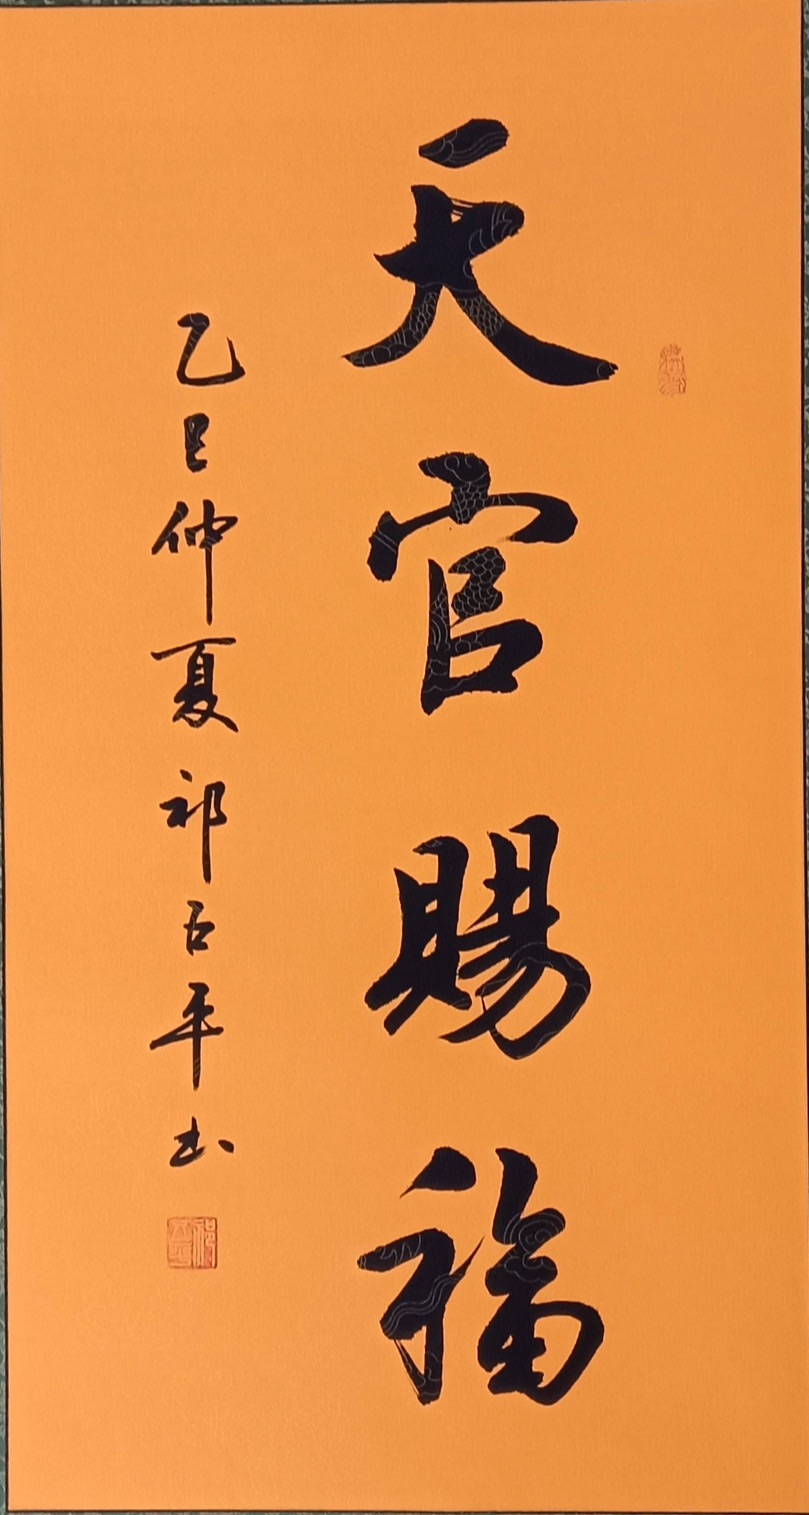 天官賜福
乙巳仲夏祁石平书